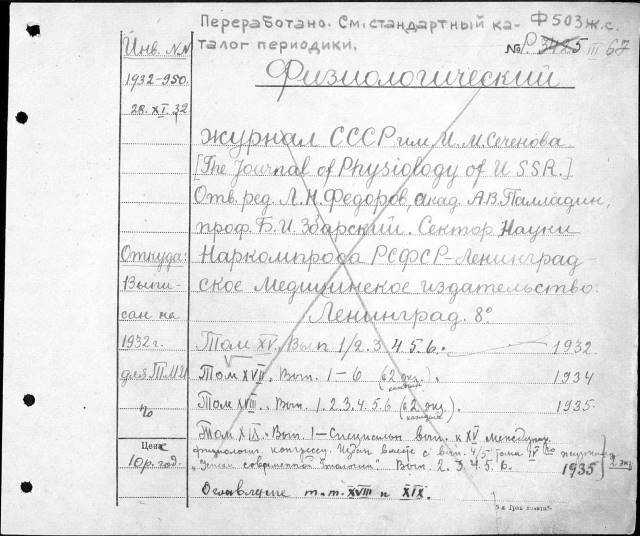 Переработано. См. стандартный ка-
талог периодики.
Ф 503 ж.с.
Инв. NN
1932-950.
28. XI. 32
Физиологический
журнал СССР им. И. М. Сеченова.
[The Journal of Physiology of USSR.]
Отв. ред. Л. Н. Федоров, акад. А. В. Палладин,
проф. Б. И. Збарский. Сектор Науки
Откуда:
Наркомпроса РСФСР-Ленинград-
Выпи-
ское Медицинское издательство.
сан на
Ленинград. 8°
1932 г.
Том XV. Вып 1/2. 3 4. 5. 6. 1932.
для ТМИ
Том XVII. Вып. 1-6 (62 экз.). 1934
каждый
Том XVIII. Вып. 1. 2. 3. 4. 5. 6 (62 экз.). 1935.
каждый
Том XIX. Вып. 1-Специальн вып. к XV междунар.
Цена
физиологич. конгрессу. Издан вместе с вып. 4/5 тома IV журнала
10 р. год.
Вып. 2. 3. 4. 5. 6. 1935 2 экз
Оглавление т.т. XVIII и XIX.